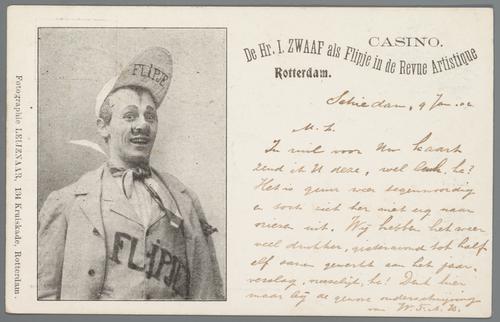 CASINO.
De Hr. I. ZWAAF als Flipje in de Revue Artistique
Rotterdam.
FLIPJE
FLIPJE
Fotographie LEIJENAAR, 134 Kruiskade, Rotterdam.
Schiedam, 9 Jan. 02
M. L.
In ruil voor Uw kaart
zend ik U deze, wel leuk, he?
Het is geen weer tegenwoordig
en toch ziet her niet erg naar
vriezen uit. Wij hebben het weer
veel drukker, gisteravond tot half
elf samen gewerkt aan het jaar-
verslag, vreeselijk, he! Denk hier
maar bij de gewone onderschrijving
van W. F. A. H.